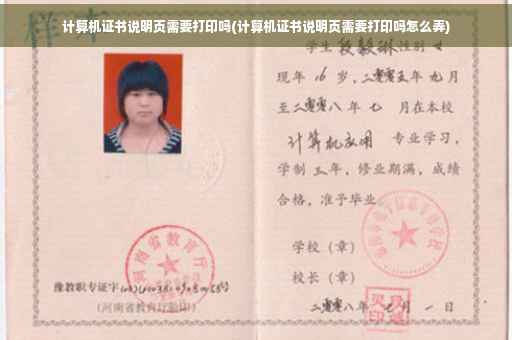 计算机证书说明页需要打印吗(计算机证书说明页需要打印吗怎么弄)
样本
学生段毅琳性别女
现年16岁，二零零五年九月
至二零零八年七 月在本校
计算机应用 专业学习，
学制三年，修业期满，成绩
合格，准予毕业。
河南省教育厅
学校（章）
豫教职专证字
校长（章）
(河南省教育厅验印)
二零零八年七月一日